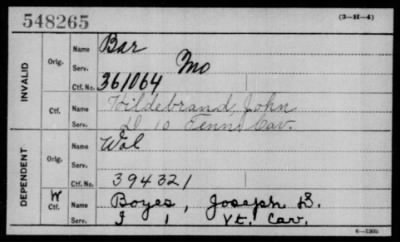 548265 (3-H-4)
INVALID
Orig. Name Bar
Serv. Mo
Ctf. No. 361064
Ctf. Name Hildebrand, John
Serv. D 10 Tenn. Cav.
DEPENDENT
Orig. Name Wol
Serv.
Ctf. No. 394321
W Ctf. Name Boyes, Joseph S.
Serv. I 1 Vt. Cav.